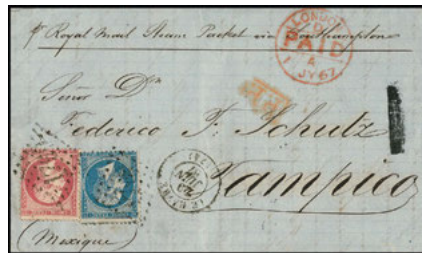 pr Royal Mail Steam Packet via Southampton
LONDON
PAID
4
JY 67
Señor Dn
P.D.
Federico F. Schutz
Tampico
(Mexique)